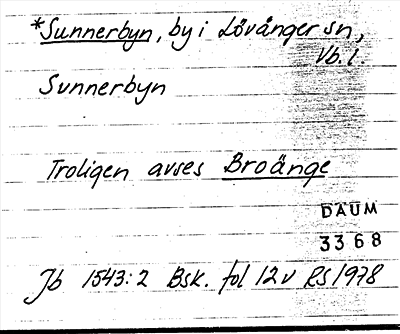 *Sunnerbyn, by i Lövånger sn,
Vb. l.
Sunnerbyn
Troligen avses Broänge
DAUM
3368
Jb 1543:2 Bsk. fol 12v RS 1978